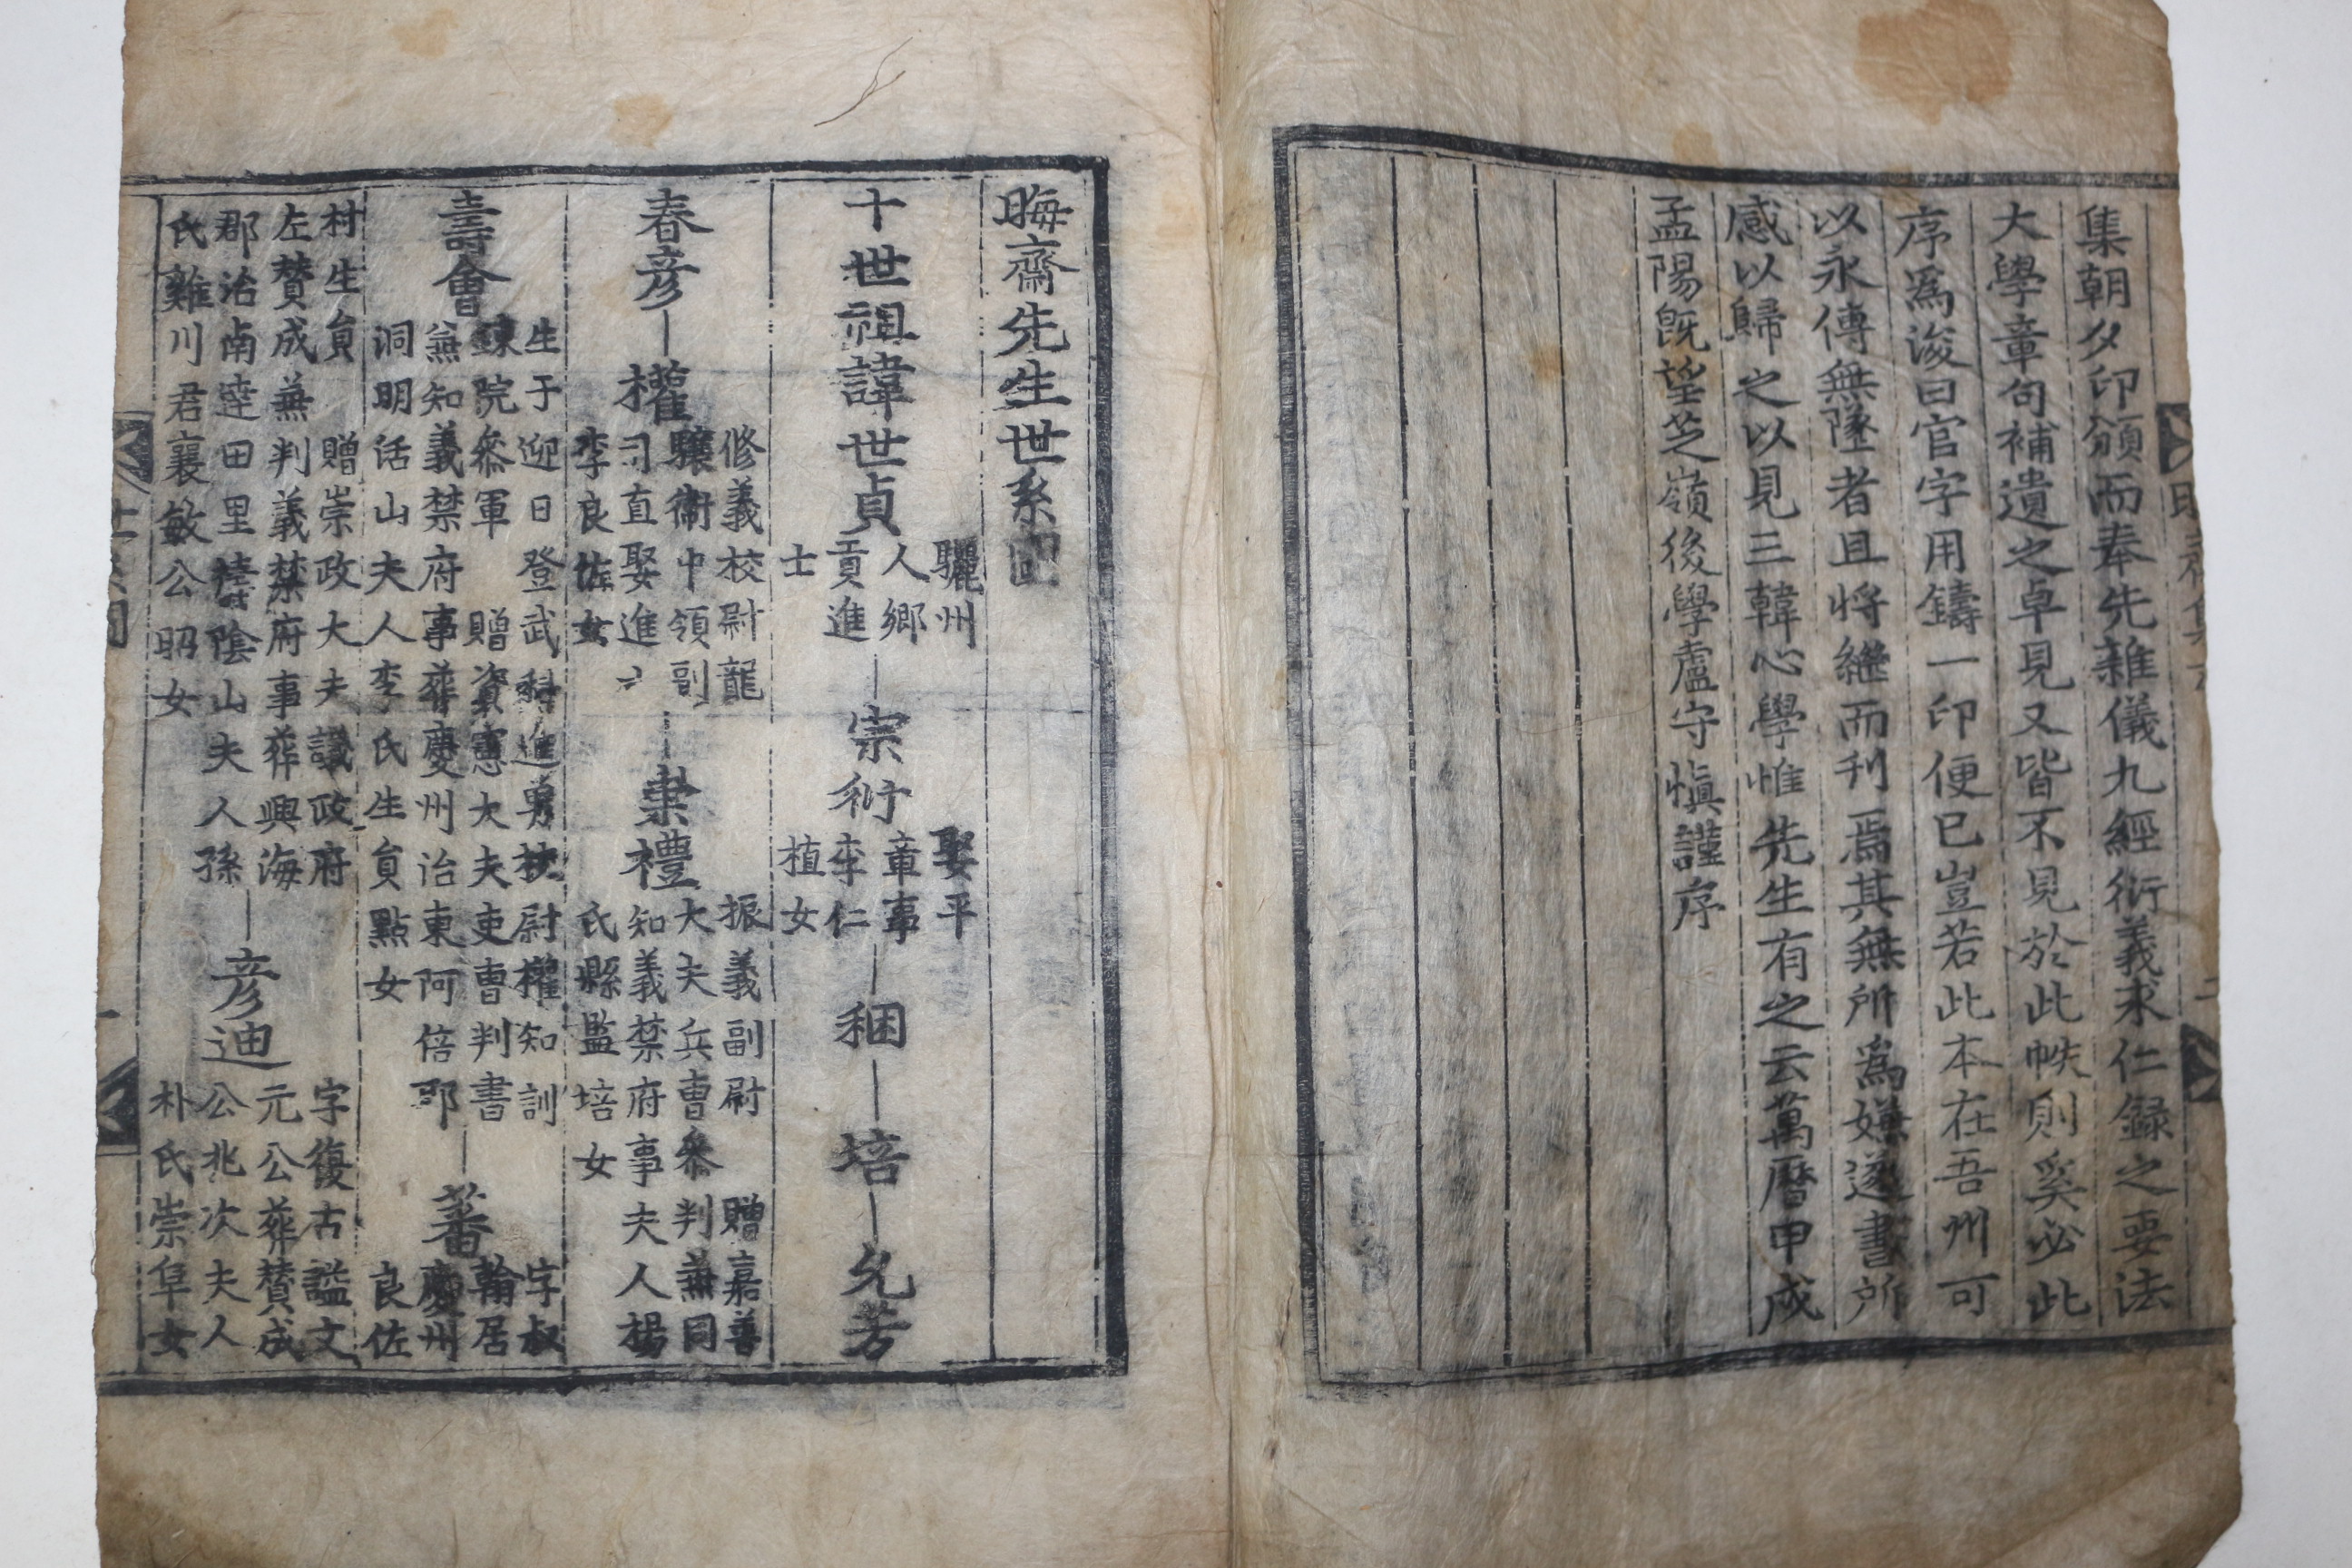 集朝夕印頒而奉先雜儀九經衍義求仁錄之要法
大學章句補遺之卓見又皆不見於此帙則奚必此
序爲浚曰官字用鑄一印便已豈若此本在吾州可
以永傳無墜者且將繼而刋焉其無所爲嫌遂書所
感以歸之以見三韓心學惟先生有之云萬曆甲戌
孟陽旣望芝嶺後學盧守愼謹序
晦齋先生世系圖
十世祖諱世貞
驪州
人鄕
貢進
士
宗衍
娶平
章事
李仁
植女
稇
培
允芳
春彦
權
修義校尉龍
驤衛中領副
司直娶進士
李良佐女
崇禮
振義副尉 贈嘉善
大夫兵曹叅判兼同
知義禁府事夫人楊
氏縣監培女
壽會
生于迎日登武科進勇校尉權知訓
鍊院叅軍 贈資憲大夫吏曹判書
兼知義禁府事葬慶州治東阿倍耶
洞明活山夫人李氏生員點女
蕃
字叔
翰居
慶州
良佐
村生員 贈崇政大夫議政府
左贊成兼判義禁府事葬興海
郡治南逹田里禱陰山夫人孫
氏雞川君襄敏公昭女
彦迪
字復古謚文
元公葬贊成
公兆次夫人
朴氏崇阜女